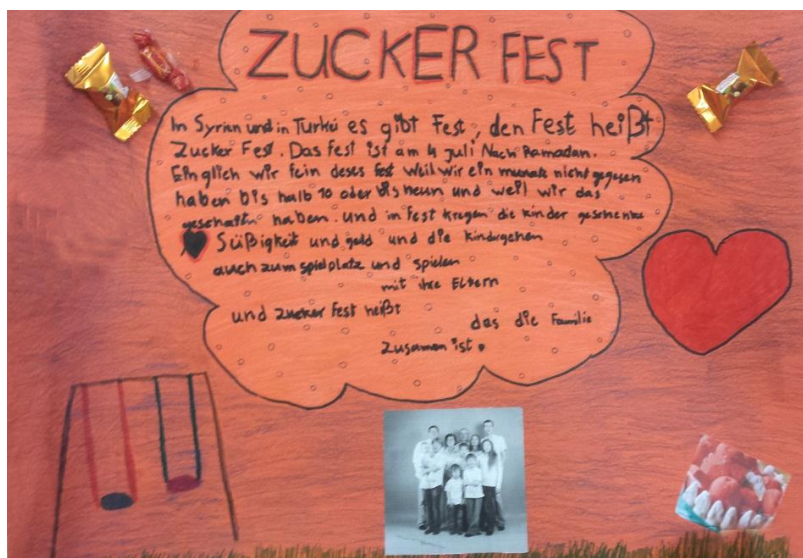 ZUCKER FEST
In Syrian und in Turkü es gibt Fest, den Fest heißt
Zucker Fest. Das Fest ist am 4 Juli Nach Ramadan.
Einglich wir fein deses Fest weil wir ein munate nicht gegesen
haben bis halb 10 oder bis neun und weil wir das
geschaftn haben. und in Fest kregen die kinder geschenke
Süßigkeit und geld und die kinder gehen
auch zum spielplatz und spielen
mit ihre Eltern
und zucker Fest heißt
das die Familie
zusamen ist.